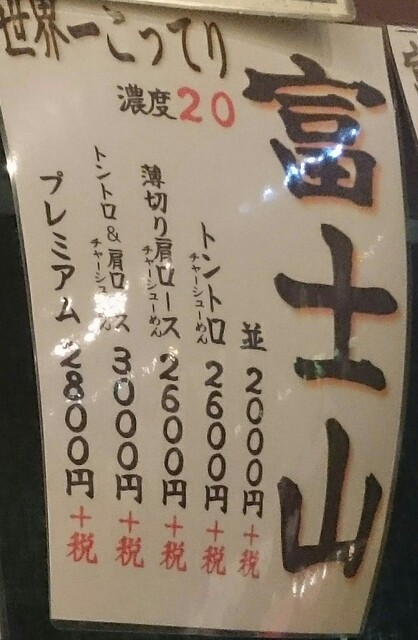 世界一こってり
濃度20
富士山
並 2000円+税
トントロチャーシューめん 2600円+税
薄切り肩ローススチャーシューめん 2600円+税
トントロ&肩ロースチャーシューめん 3000円+税
プレミアム 2800円+税